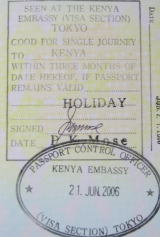 SEEN AT THE KENYA
EMBASSY (VISA SECTION)
TOKYO
GOOD FOR SINGLE JOURNEY
TO KENYA
WITHIN THREE MONTHS OF
DATE HEREOF, IF PASSPORT
REMAINS VALID
HOLIDAY
SIGNED
DATE
Mose
PASSPORT CONTROL OFFICER
KENYA EMBASSY
21. JUN. 2006
(VISA SECTION) TOKYO
Date